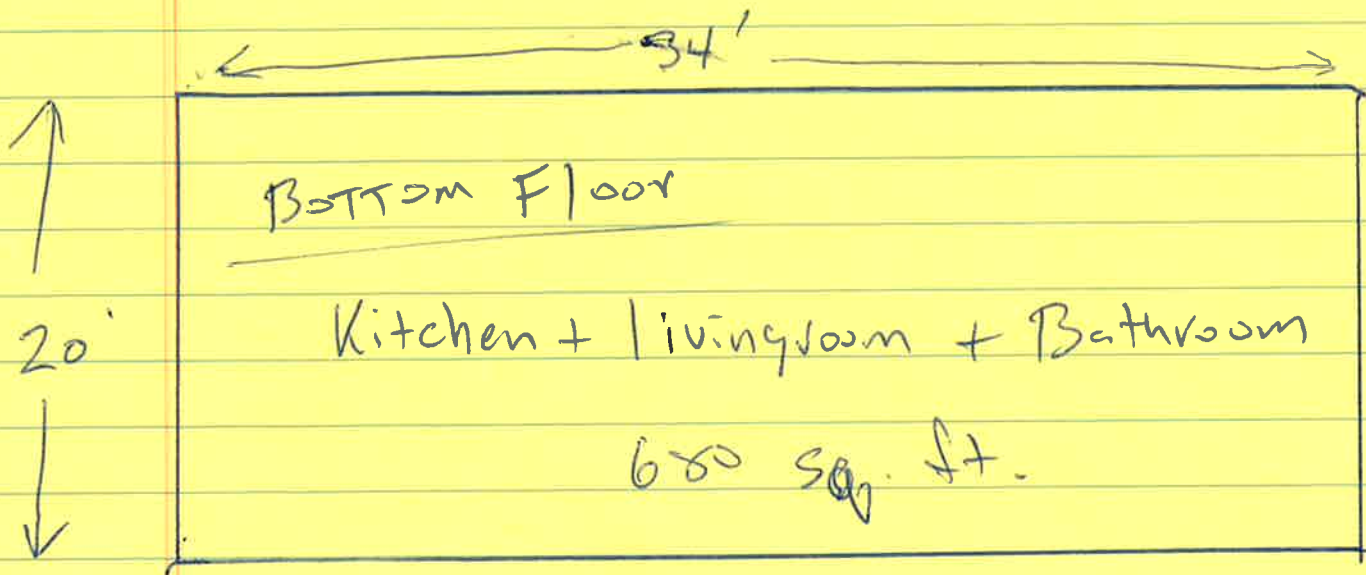 34'
Bottom Floor
20'
Kitchen + livingroom + Bathroom
680 sq. ft.